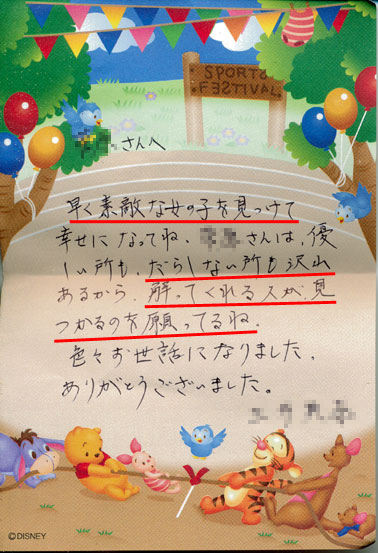 SPORTS
FESTIVAL
さんへ
早く素敵な女の子を見つけて
幸せになってね。さんは、優
しい所も、だらしない所も沢山
あるから、解ってくれる人が、見
つかるのを願ってるね。
色々お世話になりました。
ありがとうございました。
©DISNEY